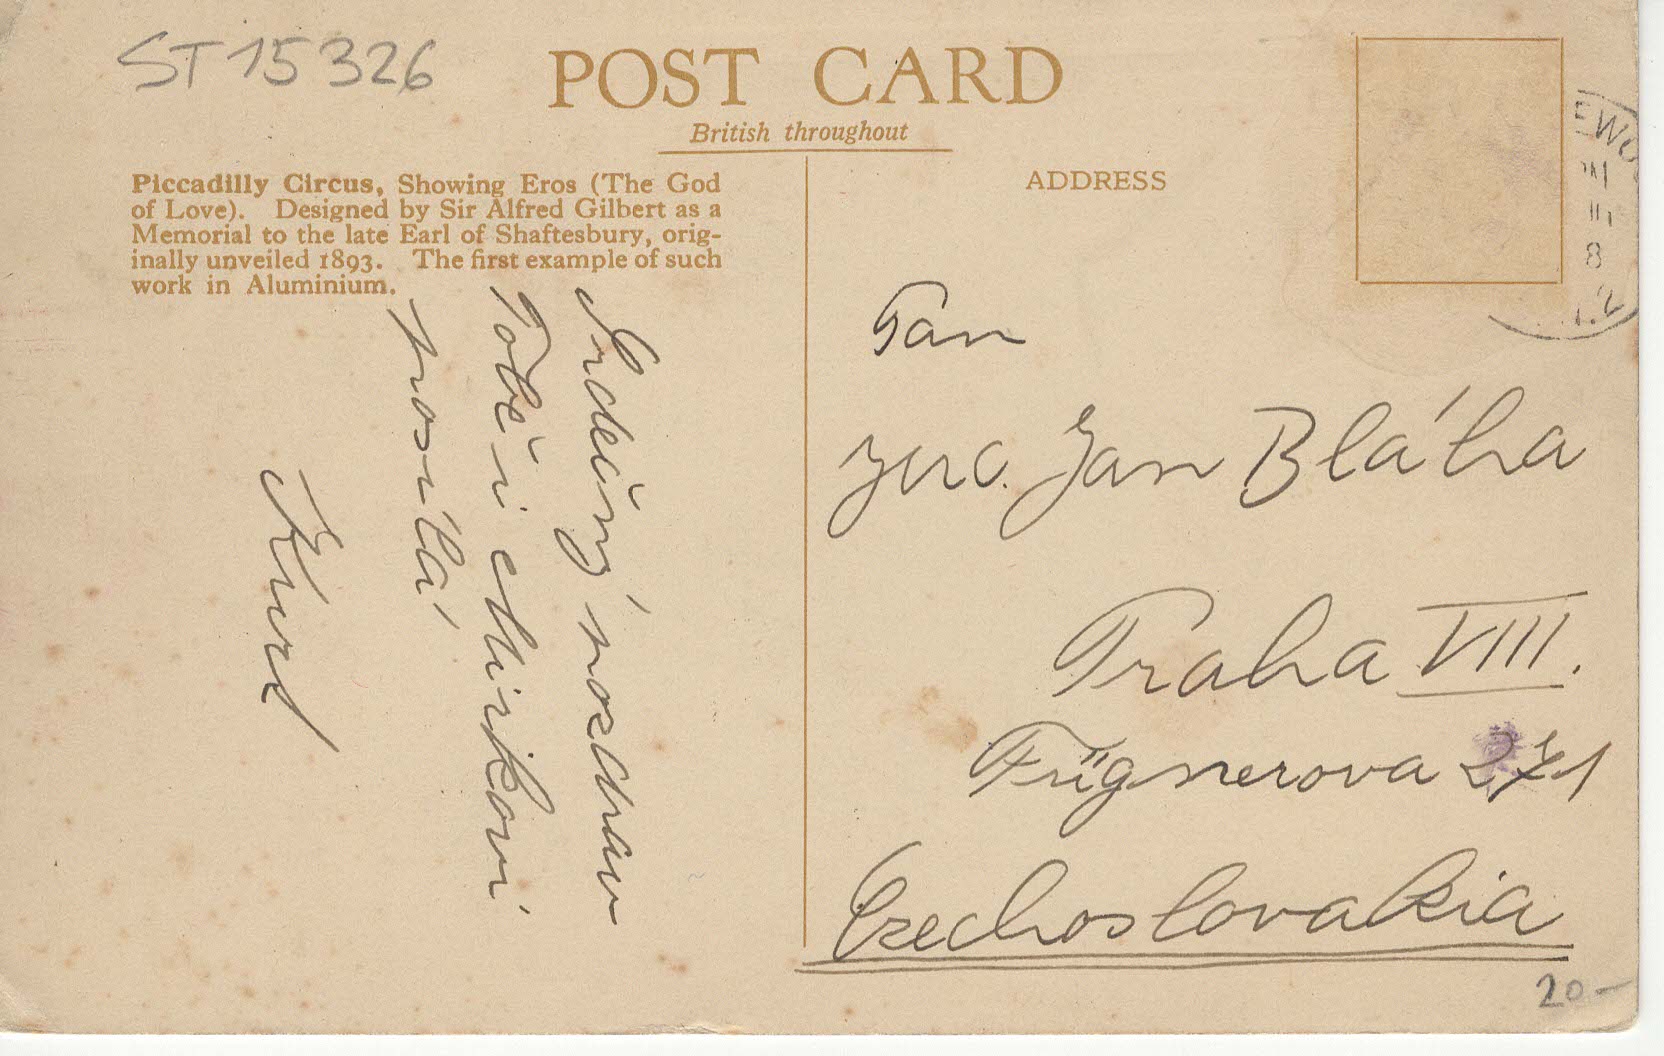 ST 15326
POST CARD
British throughout
Piccadilly Circus, Showing Eros (The God
of Love). Designed by Sir Alfred Gilbert as a
Memorial to the late Earl of Shaftesbury, orig-
inally unveiled 1893. The first example of such
work in Aluminium.
Srdečný pozdrav
Tobě i Mirkovi
posílá
Kurt
ADDRESS
Pan
JUC. Jan Bláha
Praha VIII.
Fügnerova 271
Czechoslovakia
20-